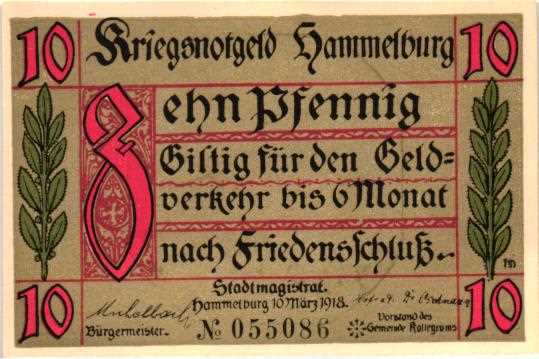 10 Kriegsnotgeld Hammelburg 10
Zehn Pfennig
Giltig für den Geld=
verkehr bis 6 Monat
nach Friedensschluß.
Stadtmagistrat.
Hammelburg 10 März 1918.
Bürgermeister.
№ 055086
Vorstand des
Gemeinde Kollegiums
10 10